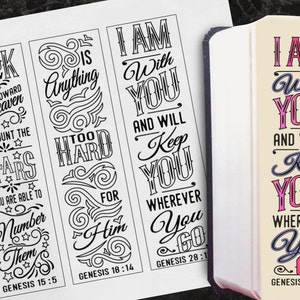 OWARD
eaven
OUNT THE
ARS
OU ARE ABLE TO
Number
Them
GENESIS 15:5
IS
Anything
TOO
HARD
FOR
Him
GENESIS 18:14
I AM
With
YOU
AND WILL
Keep
YOU
WHEREVER
You
GO
GENESIS 28:1
I A
W
YO
AND W
K
YO
WHERE
Y
G
GENESIS